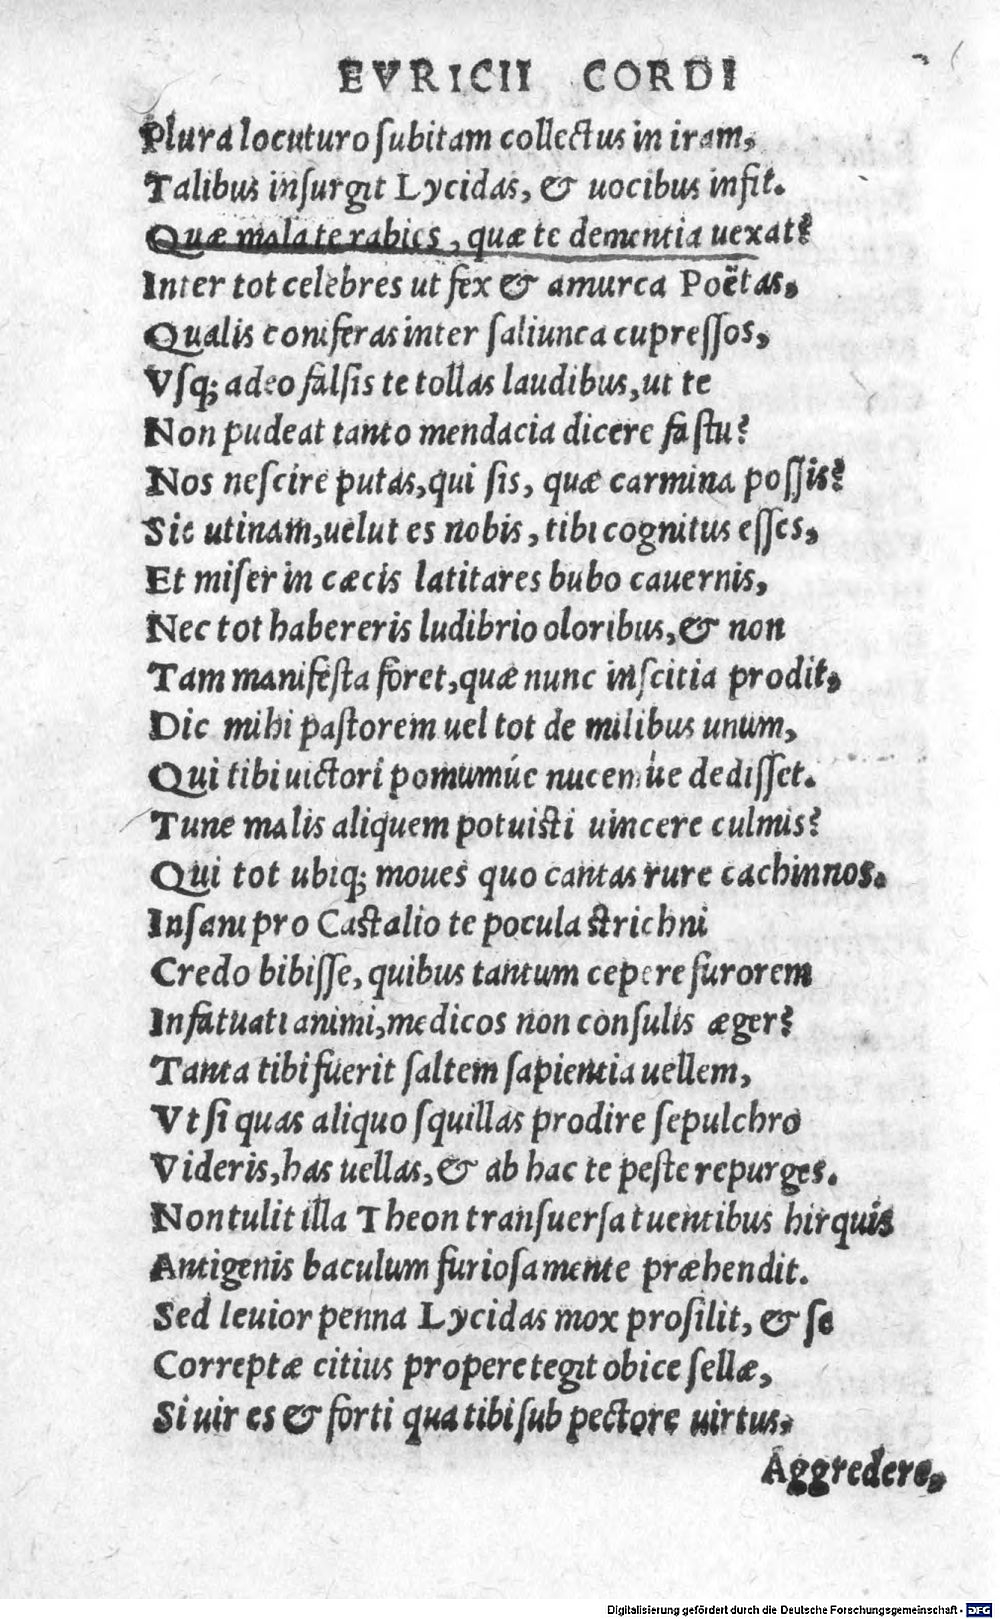 EVRICII CORDI
Plura locuturo ſubitam collectus in iram,
Talibus inſurgit Lycidas, & uocibus infit.
Quæ mala te rabies, quæ te dementia uexat?
Inter tot celebres ut fex & amurca Poëtas,
Qualis coniferas inter ſaliunca cupreſſos,
Vſq; adeo falſis te tollas laudibus, ut te
Non pudeat tanto mendacia dicere faſtu?
Nos neſcire putas, qui ſis, quæ carmina poſſis?
Sic utinam, uelut es nobis, tibi cognitus eſſes,
Et miſer in cæcis latitares bubo cauernis,
Nec tot habereris ludibrio oloribus, & non
Tam manifeſta foret, quæ nunc inſcitia prodit,
Dic mihi paſtorem uel tot de milibus unum,
Qui tibi uictori pomumúe nucemúe dediſſet.
Tune malis aliquem potuiſti uincere culmis?
Qui tot ubiq; moues quo cantas rure cachinnos.
Inſani pro Caſtalio te pocula ſtrichni
Credo bibiſſe, quibus tantum cepere furorem
Infatuati animi, medicos non conſulis æger?
Tanta tibi fuerit ſaltem ſapientia uellem,
Vt ſi quas aliquo ſquillas prodire ſepulchro
Videris, has uellas, & ab hac te peſte repurges.
Non tulit illa Theon tranſuerſa tuentibus hirquis
Antigenis baculum furioſa mente præhendit.
Sed leuior penna Lycidas mox proſilit, & ſe
Correptæ citius propere tegit obice ſellæ,
Si uir es & forti qua tibi ſub pectore uirtus,
Aggredere,
Digitalisierung gefördert durch die Deutsche Forschungsgemeinschaft - DFG